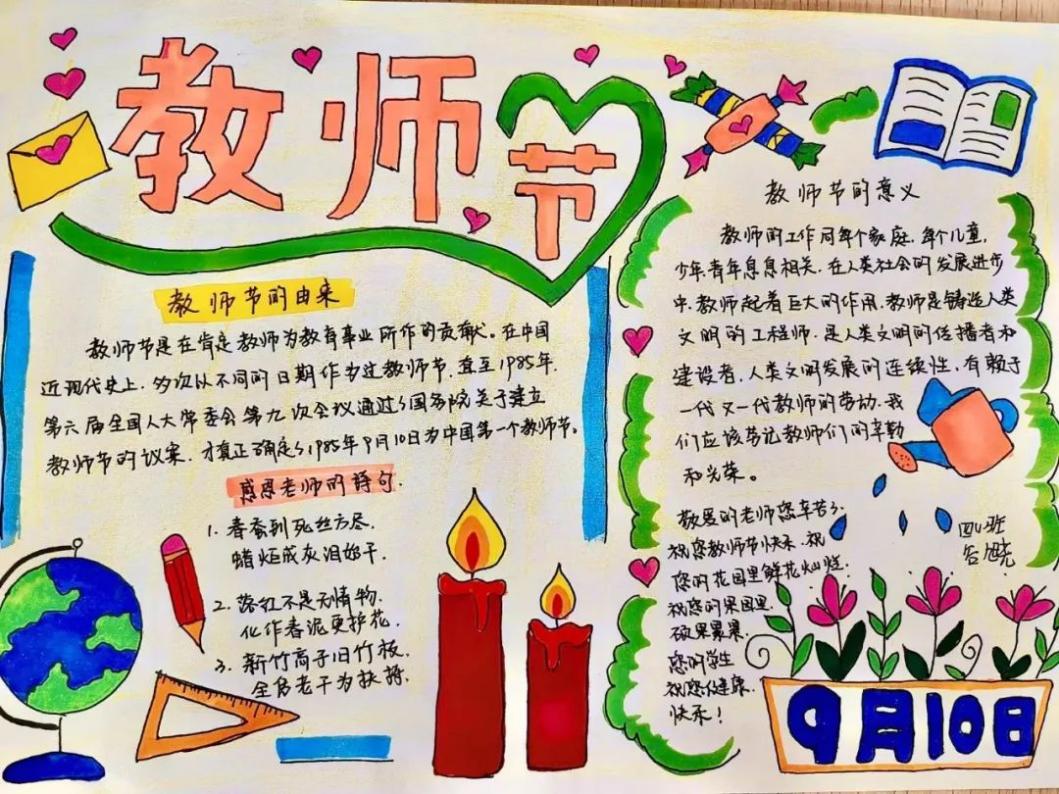 教师节
教师节的由来
教师节是在肯定教师为教育事业所作的贡献。在中国
近现代史上,多次以不同的日期作为过教师节,直至1985年,
第六届全国人大常委会第九次会议通过了国务院关于建立
教师节的议案,才真正确定了1985年9月10日为中国第一个教师节。
感恩老师的诗句.
1. 春蚕到死丝方尽,
蜡炬成灰泪始干.
2. 落红不是无情物,
化作春泥更护花.
3. 新竹高于旧竹枝,
全凭老干为扶持.
教师节的意义
教师的工作同每个家庭,每个儿童,
少年青年息息相关,在人类社会的发展进步
中,教师起着巨大的作用,教师是铸造人类
文明的工程师,是人类文明的传播者和
建设者,人类文明发展的连续性,有赖于
一代又一代教师的劳动.我
们应该节记教师们的辛勤
和光荣。
敬爱的老师您辛苦了,
祝您教师节快乐,祝
您的花园里鲜花灿烂.
祝您的果园里
硕果累累,
您的学生
祝您健康
快乐!
四(1)班
9月10日